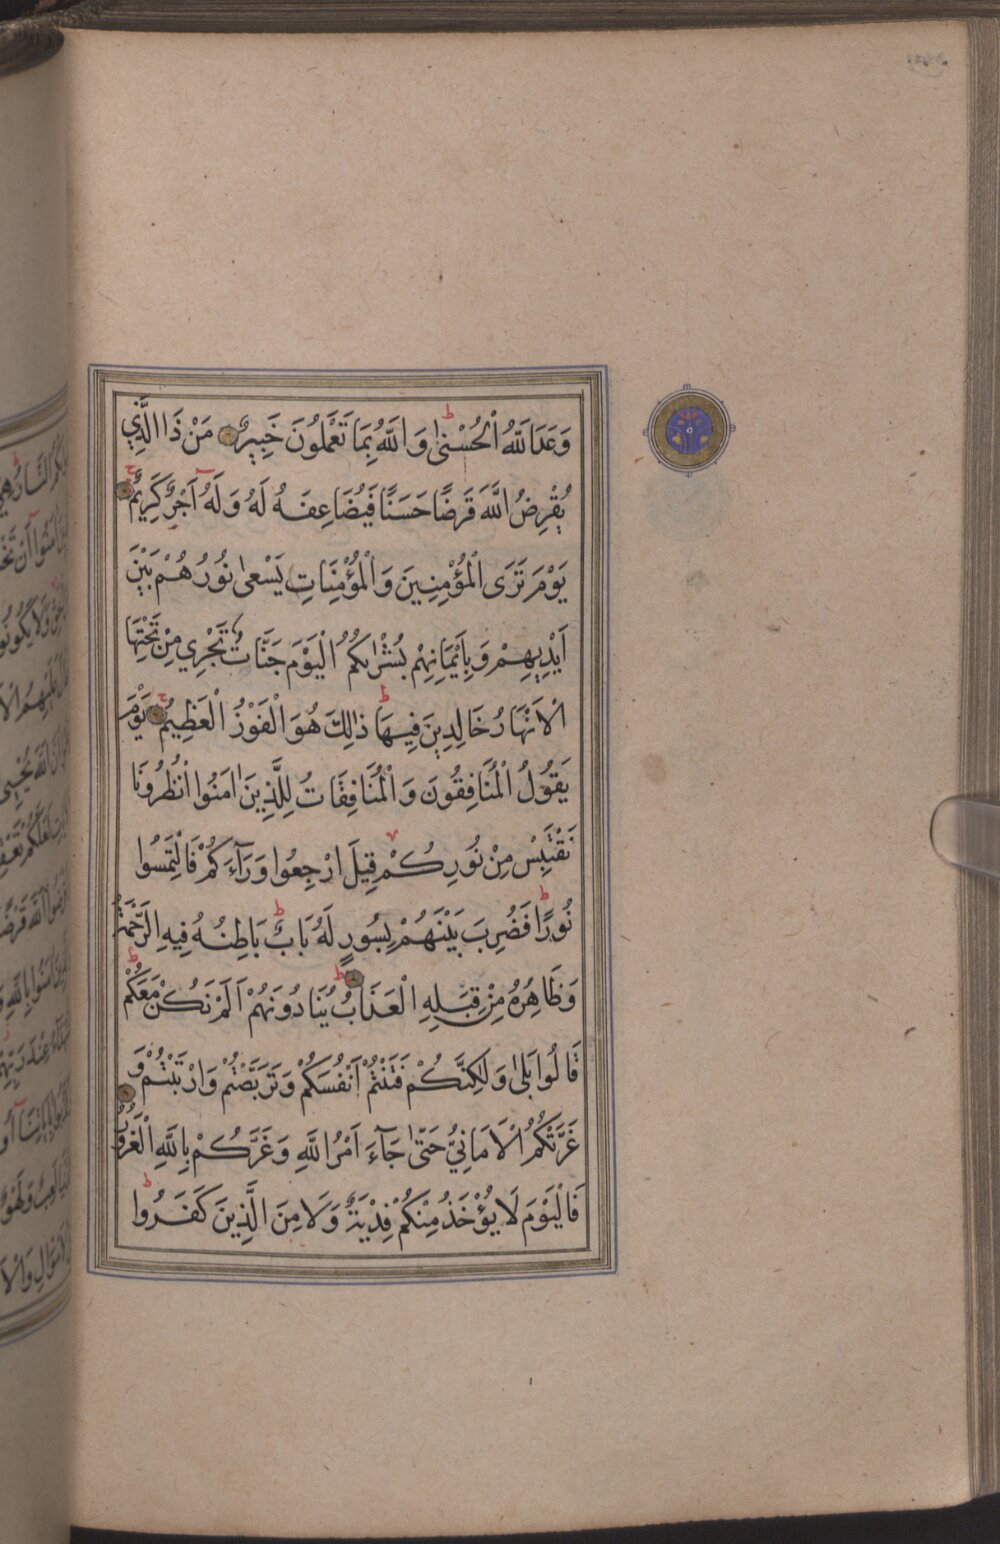 وَعَدَ اللَّهُ الْحُسْنٰى وَاللَّهُ بِمَا تَعْمَلُونَ خَبِيرٌ مَنْ ذَا الَّذِي
يُقْرِضُ اللَّهَ قَرْضًا حَسَنًا فَيُضَاعِفَهُ لَهُ وَلَهُ اَجْرٌ كَرِيمٌ
يَوْمَ تَرَى الْمُؤْمِنِينَ وَالْمُؤْمِنَاتِ يَسْعٰى نُورُهُمْ بَيْنَ
اَيْدِيهِمْ وَبِاَيْمَانِهِمْ بُشْرٰيكُمُ الْيَوْمَ جَنَّاتٌ تَجْرِي مِنْ تَحْتِهَا
الْاَنْهَارُ خَالِدِينَ فِيهَا ذٰلِكَ هُوَ الْفَوْزُ الْعَظِيمُ يَوْمَ
يَقُولُ الْمُنَافِقُونَ وَالْمُنَافِقَاتُ لِلَّذِينَ اٰمَنُوا انْظُرُونَا
نَقْتَبِسْ مِنْ نُورِكُمْ قِيلَ ارْجِعُوا وَرَآءَكُمْ فَالْتَمِسُوا
نُورًا فَضُرِبَ بَيْنَهُمْ بِسُورٍ لَهُ بَابٌ بَاطِنُهُ فِيهِ الرَّحْمَةُ
وَظَاهِرُهُ مِنْ قِبَلِهِ الْعَذَابُ يُنَادُونَهُمْ اَلَمْ نَكُنْ مَعَكُمْ
قَالُوا بَلٰى وَلٰكِنَّكُمْ فَتَنْتُمْ اَنْفُسَكُمْ وَتَرَبَّصْتُمْ وَارْتَبْتُمْ وَ
غَرَّتْكُمُ الْاَمَانِيُّ حَتّٰى جَآءَ اَمْرُ اللَّهِ وَغَرَّكُمْ بِاللَّهِ الْغَرُورُ
فَالْيَوْمَ لَا يُؤْخَذُ مِنْكُمْ فِدْيَةٌ وَلَا مِنَ الَّذِينَ كَفَرُوا